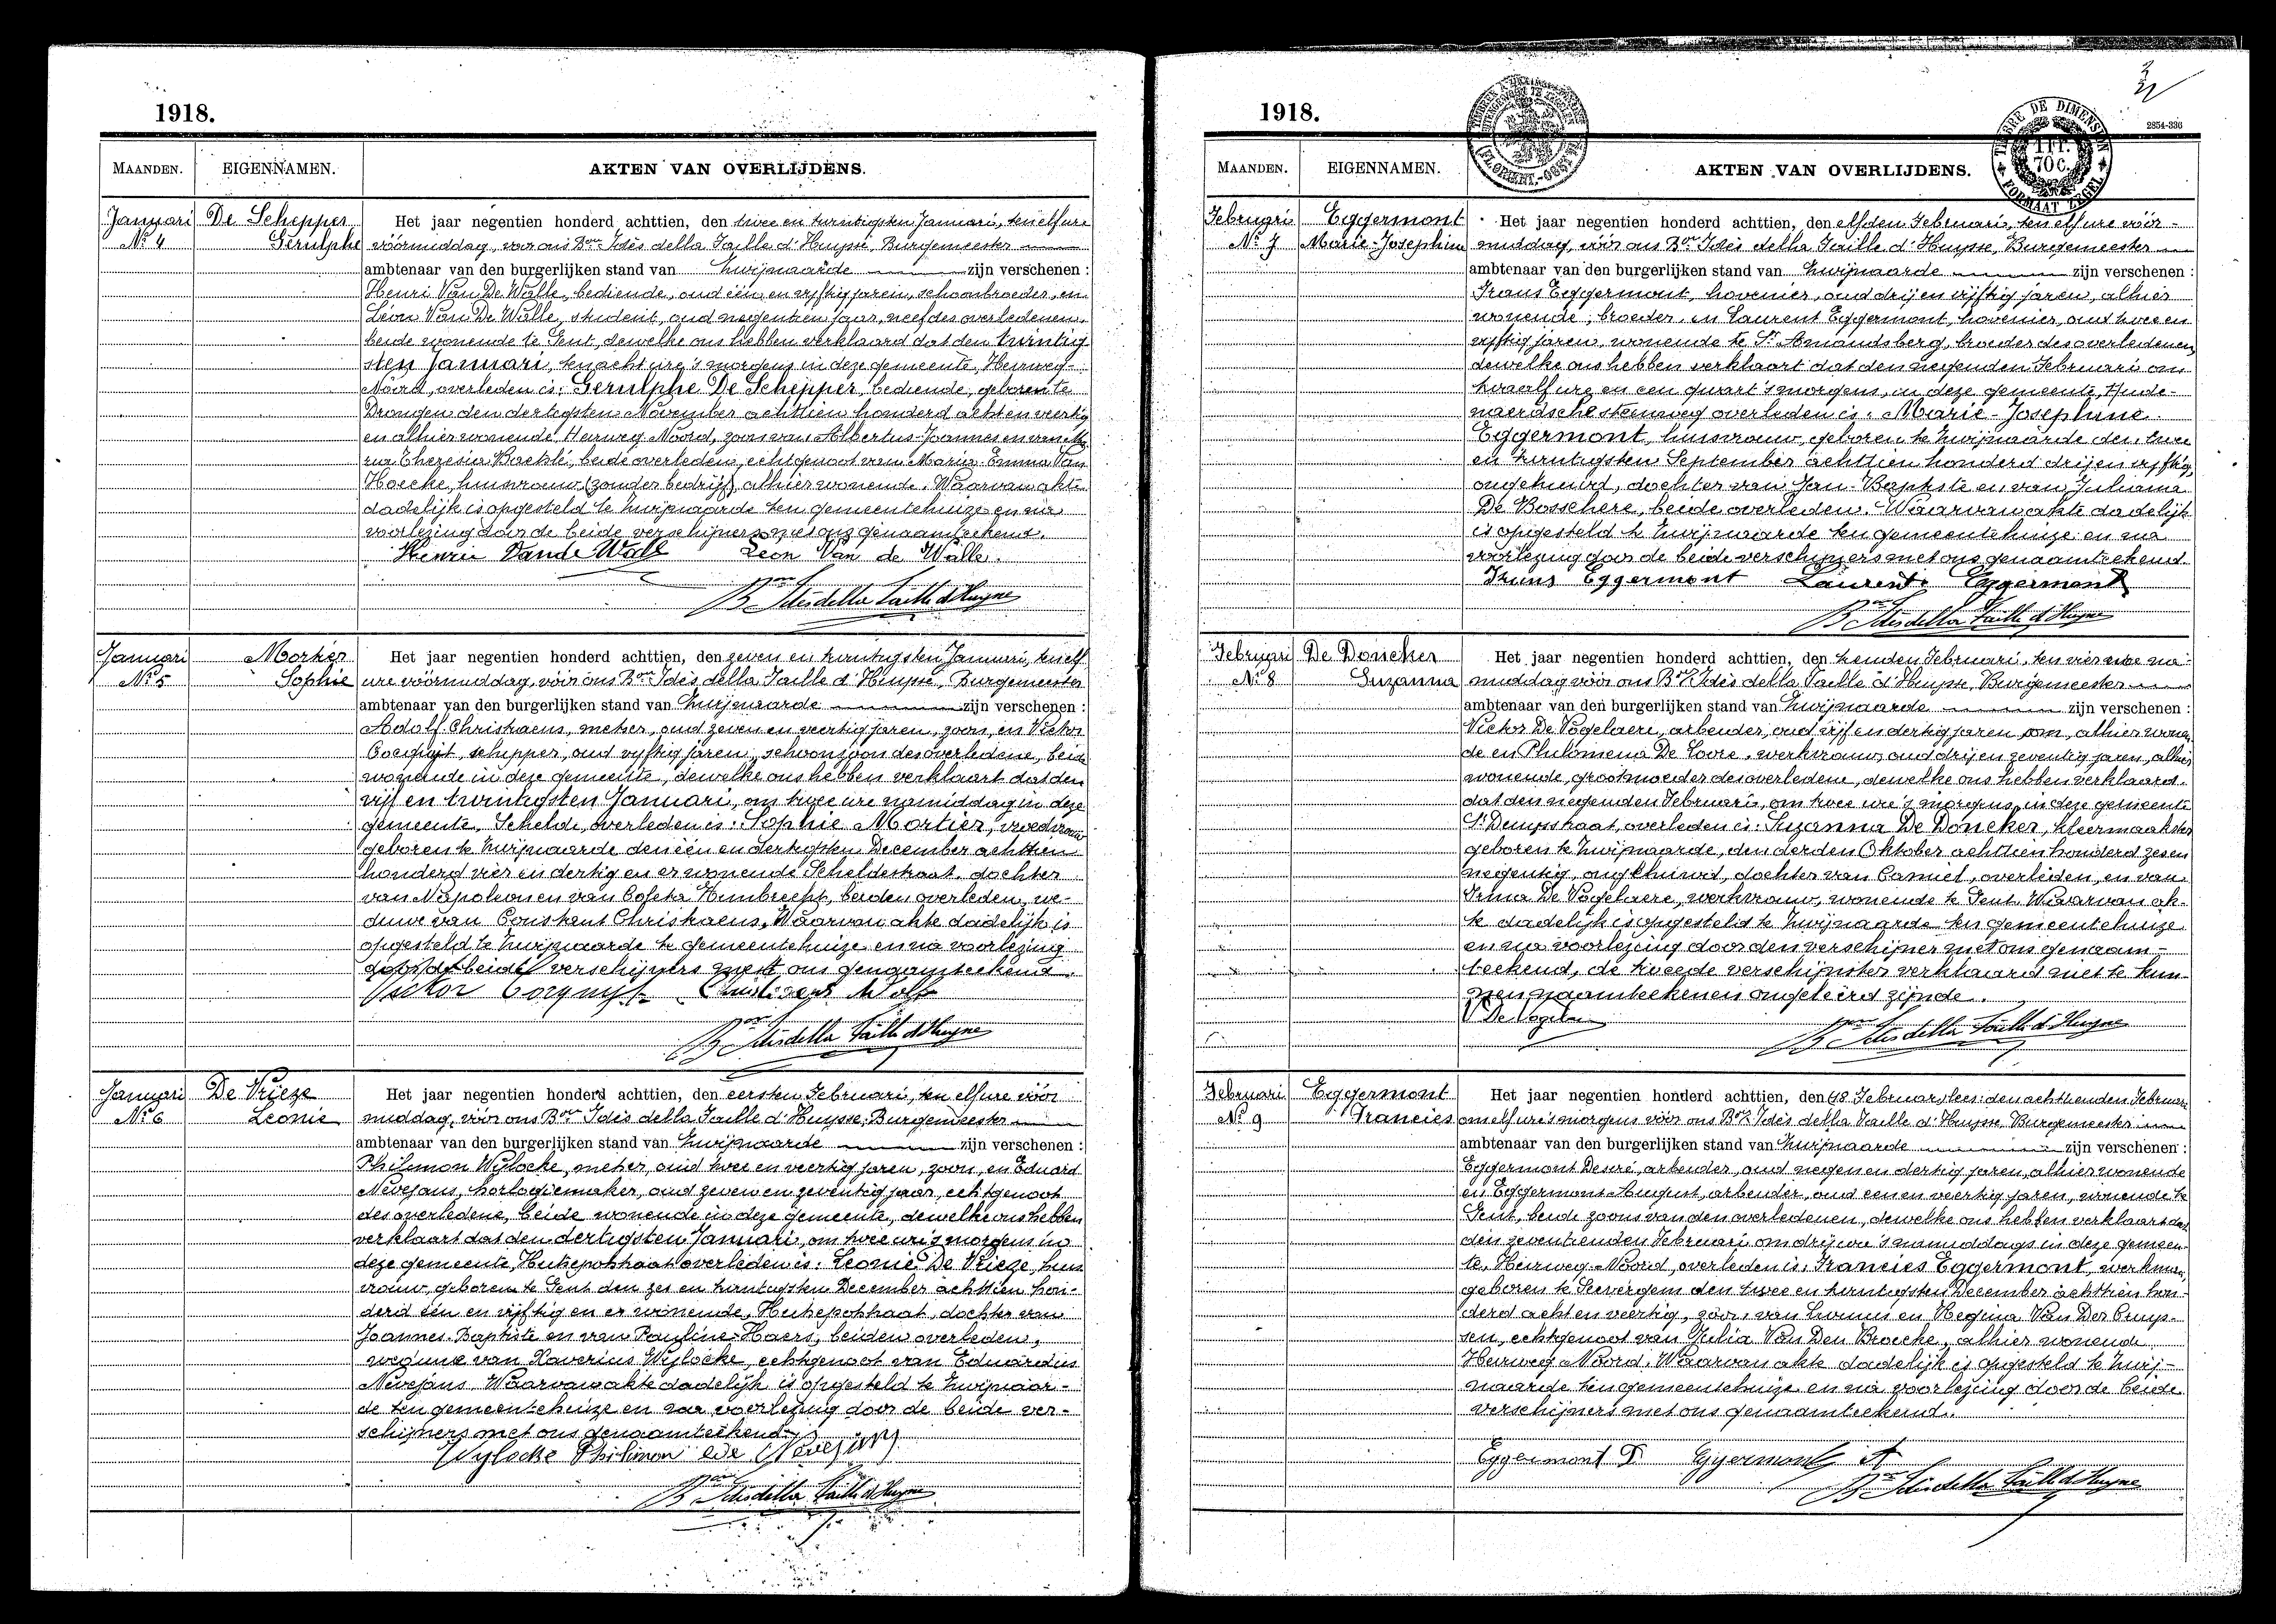 1918.
MAANDEN. EIGENNAMEN. AKTEN VAN OVERLIJDENS.
Januari De Schepper Het jaar negentien honderd achttien, den twee en twintigsten Januari, ten elf ure
No 4 Gerulphe vóórmiddag, voor ons Bon Idès della Faille d'Huysse, Burgemeester
ambtenaar van den burgerlijken stand van Zwijnaarde zijn verschenen :
Henri Van De Walle, bediende, oud één en vijftig jaren, schoonbroeder, en
Léon Van De Walle, student, oud negentien jaar, neef des overledenen,
beide wonende te Gent, dewelke ons hebben verklaard dat den twintig
sten Januari, ten acht ure 's morgens in deze gemeente, Heirweg-
Noord, overleden is: Gerulphe De Schepper, bediende, geboren te
Drongen den dertigsten November achttien honderd acht en veertig
en alhier wonende, Heirweg-Noord, zoon van Albertus-Joannes en van
Theresia beide overleden, echtgenoot van Maria-Emma Van
Hoecke, huisvrouw (zonder bedrijf), alhier wonende. Waarvan akte
dadelijk is opgesteld te Zwijnaarde ten gemeentehuize en na
voorlezing door de beide verschijners met ons genaamteekend.
Henri Van de Walle Leon Van de Walle.
Bon Idès della Faille d'Huysse
Januari Mortier Het jaar negentien honderd achttien, den zeven en twintigsten Januari, ten elf
No 5 Sophie ure vóórmiddag, vóór ons Bon Idès della Faille d'Huysse, Burgemeester
ambtenaar van den burgerlijken stand van Zwijnaarde zijn verschenen :
Adolf Christiaens, metser, oud zeven en veertig jaren, zoon, en Victor
Cocquyt, schipper, oud vijftig jaren, schoonzoon des overledene, beide
wonende in deze gemeente, dewelke ons hebben verklaart dat den
vijf en twintigsten Januari, om twee ure namiddag in deze
gemeente, Schelde, overleden is: Sophie Mortier, vroedvrouw
geboren te Zwijnaarde den één en dertigsten December achttien
honderd vier en dertig en er wonende Scheldestraat, dochter
van Napoleon en van Coleta Himbrecht, beiden overleden, we-
duwe van Constant Christiaens. Waarvan akte dadelijk is
opgesteld te Zwijnaarde te gemeentehuize en na voorlezing
door de beide verschijners met ons genaamteekend.
Victor Cocquyt Christiaens Adolf
Bon Idès della Faille d'Huysse
Januari De Vrieze Het jaar negentien honderd achttien, den eersten Februari, ten elf ure vóór
No 6 Leonie middag, vóór ons Bon Idès della Faille d'Huysse, Burgemeester
ambtenaar van den burgerlijken stand van Zwijnaarde zijn verschenen :
Philemon Wylocke, metser, oud twee en veertig jaren, zoon, en Eduard
Nevejans, horlogiemaker, oud zeven en zeventig jaar, echtgenoot
des overledene, beide wonende in deze gemeente, dewelke ons hebben
verklaart dat den dertigsten Januari, om twee ure 's morgens in
deze gemeente, Hutsepotstraat overleden is: Leonie De Vrieze, huis
vrouw, geboren te Gent den zes en twintigsten December achttien hon-
derd één en vijftig en er wonende, Hutsepotstraat, dochter van
Joannes-Baptiste en van Pauline Haers, beiden overleden,
weduwe van Xaverius Wylocke, echtgenoot van Eduardus
Nevejans. Waarvan akte dadelijk is opgesteld te Zwijnaar-
de ten gemeentehuize en na voorlezing door de beide ver-
schijners met ons genaamteekend.
Wylocke Philimon Nevejans
Bon Idès della Faille d'Huysse
1918.
2854-336
TIMBRE DE DIMENSION
1 FR. 70 C.
FORMAAT ZEGEL
MAANDEN. EIGENNAMEN. AKTEN VAN OVERLIJDENS.
Februari Eggermont Het jaar negentien honderd achttien, den elfden Februari, ten elf ure vóór-
No 7 Marie-Josephine middag, vóór ons Bon Idès della Faille d'Huysse, Burgemeester
ambtenaar van den burgerlijken stand van Zwijnaarde zijn verschenen :
Frans Eggermont, hovenier, oud drij en vijftig jaren, alhier
wonende, broeder, en Laurent Eggermont, hovenier, oud twee en
vijftig jaren, wonende te St Amandsberg, broeder des overledenen,
dewelke ons hebben verklaart dat den negenden Februari om
twaalf ure en een quart 's morgens, in deze gemeente, Aude-
naerdsche steenweg overleden is: Marie-Josephine
Eggermont, huisvrouw, geboren te Zwijnaarde den twee
en twintigsten September achttien honderd drij en vijftig,
ongehuwd, dochter van Jan-Baptiste en van Juliana
De Bosschere, beide overleden. Waarvan akte dadelijk
is opgesteld te Zwijnaarde ten gemeentehuize en na
voorlezing door de beide verschijners met ons genaamteekend.
Frans Eggermont Laurent Eggermont
Bon Idès della Faille d'Huysse
Februari De Doncker Het jaar negentien honderd achttien, den tienden Februari, ten vier ure na-
No 8 Suzanna middag vóór ons Bon Idès della Faille d'Huysse, Burgemeester
ambtenaar van den burgerlijken stand van Zwijnaarde zijn verschenen :
Victor De Vogelaere, arbeider, oud vijf en dertig jaren, oom, alhier wonen
de en Philomena De Loore, werkvrouw, oud drij en zeventig jaren, alhier
wonende, grootmoeder des overledene, dewelke ons hebben verklaard
dat den negenden Februari, om twee ure 's morgens, in deze gemeente
St Denysstraat, overleden is: Suzanna De Doncker, kleermaakster
geboren te Zwijnaarde, den derden Oktober achttien honderd zes en
negentig, ongehuwd, dochter van Camiel, overleden, en van
Irma De Vogelaere, werkvrouw, wonende te Gent. Waarvan ak-
te dadelijk is opgesteld te Zwijnaarde ten gemeentehuize
en na voorlezing door den verschijner met ons genaam-
teekend, de tweede verschijnster verklaard niet te kun-
nen naamteekenen ongeleerd zijnde.
V De Vogelaere
Bon Idès della Faille d'Huysse
Februari Eggermont Het jaar negentien honderd achttien, den (18 Februari, lees: den achttienden Februari
No 9 Francies om elf ure 's morgens vóór ons Bon Idès della Faille d'Huysse, Burgemeester
ambtenaar van den burgerlijken stand van Zwijnaarde zijn verschenen :
Eggermont Desiré, arbeider, oud negen en dertig jaren, alhier wonende
en Eggermont August, arbeider, oud een en veertig jaren, wonende te
Gent, beide zoons van den overledenen, dewelke ons hebben verklaart dat
den zeventienden Februari om drij ure 's namiddags in deze gemeen-
te, Heirweg-Noord, overleden is: Francies Eggermont, werkman,
geboren te Seevergem den twee en twintigsten December achttien hon-
derd acht en veertig, zoon van Livinus en Regina Van Der Cruys-
sen, echtgenoot van Julia Van Den Broecke, alhier wonende
Heirweg-Noord. Waarvan akte dadelijk is opgesteld te Zwij-
naarde ten gemeentehuize en na voorlezing door de beide
verschijners met ons genaamteekend.
Eggermont D. Eggermont A
Bon Idès della Faille d'Huysse